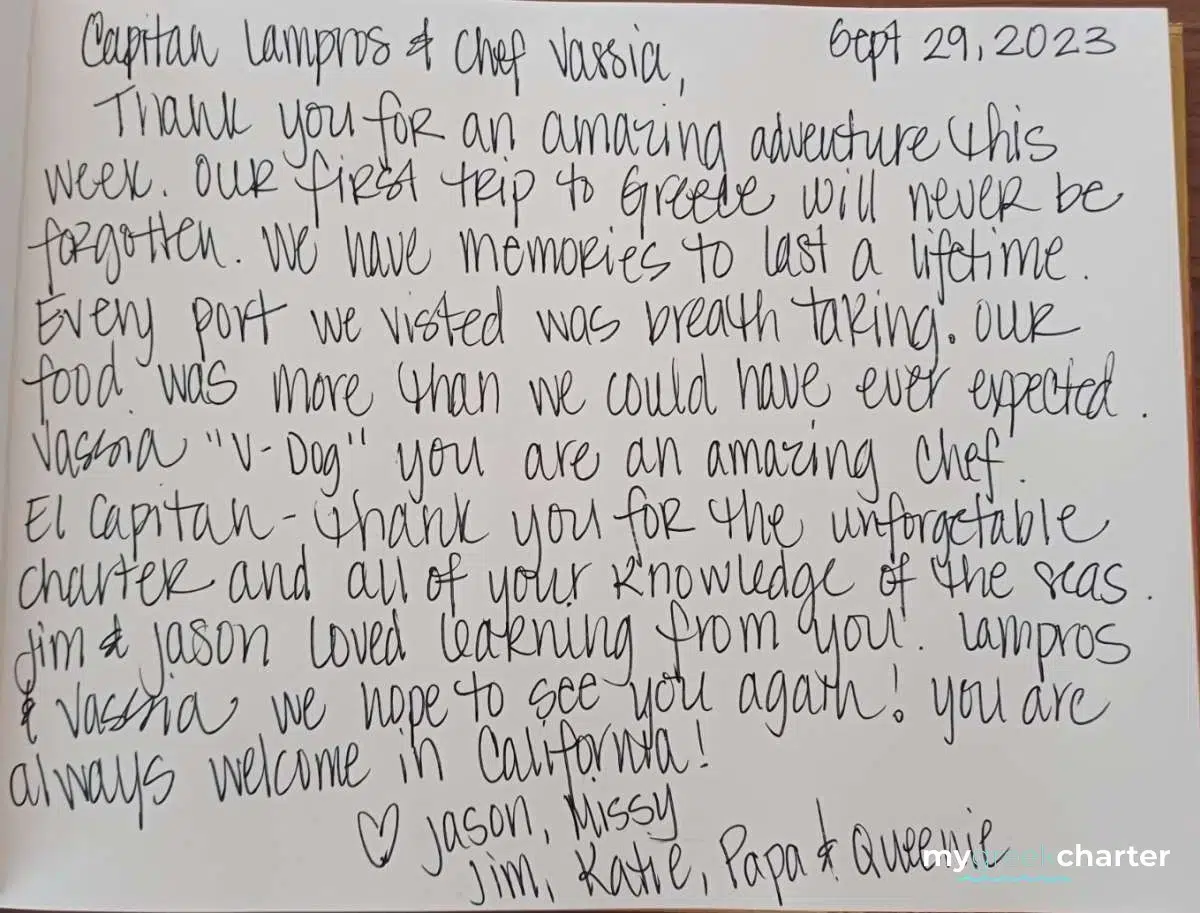 Capitan Lampros & Chef Vassia, Sept 29, 2023
Thank you for an amazing adventure this
week. Our first trip to Greece will never be
forgotten. We have memories to last a lifetime.
Every port we visted was breath taking. Our
food was more than we could have ever expected.
Vassia "V-Dog" you are an amazing chef.
El Capitan - thank you for the unforgetable
charter and all of your knowledge of the seas.
Jim & Jason loved learning from you. Lampros
& Vassia we hope to see you again! You are
always welcome in California!
♡ Jason, Missy
Jim, Katie, Papa & Queenie
mygreekcharter